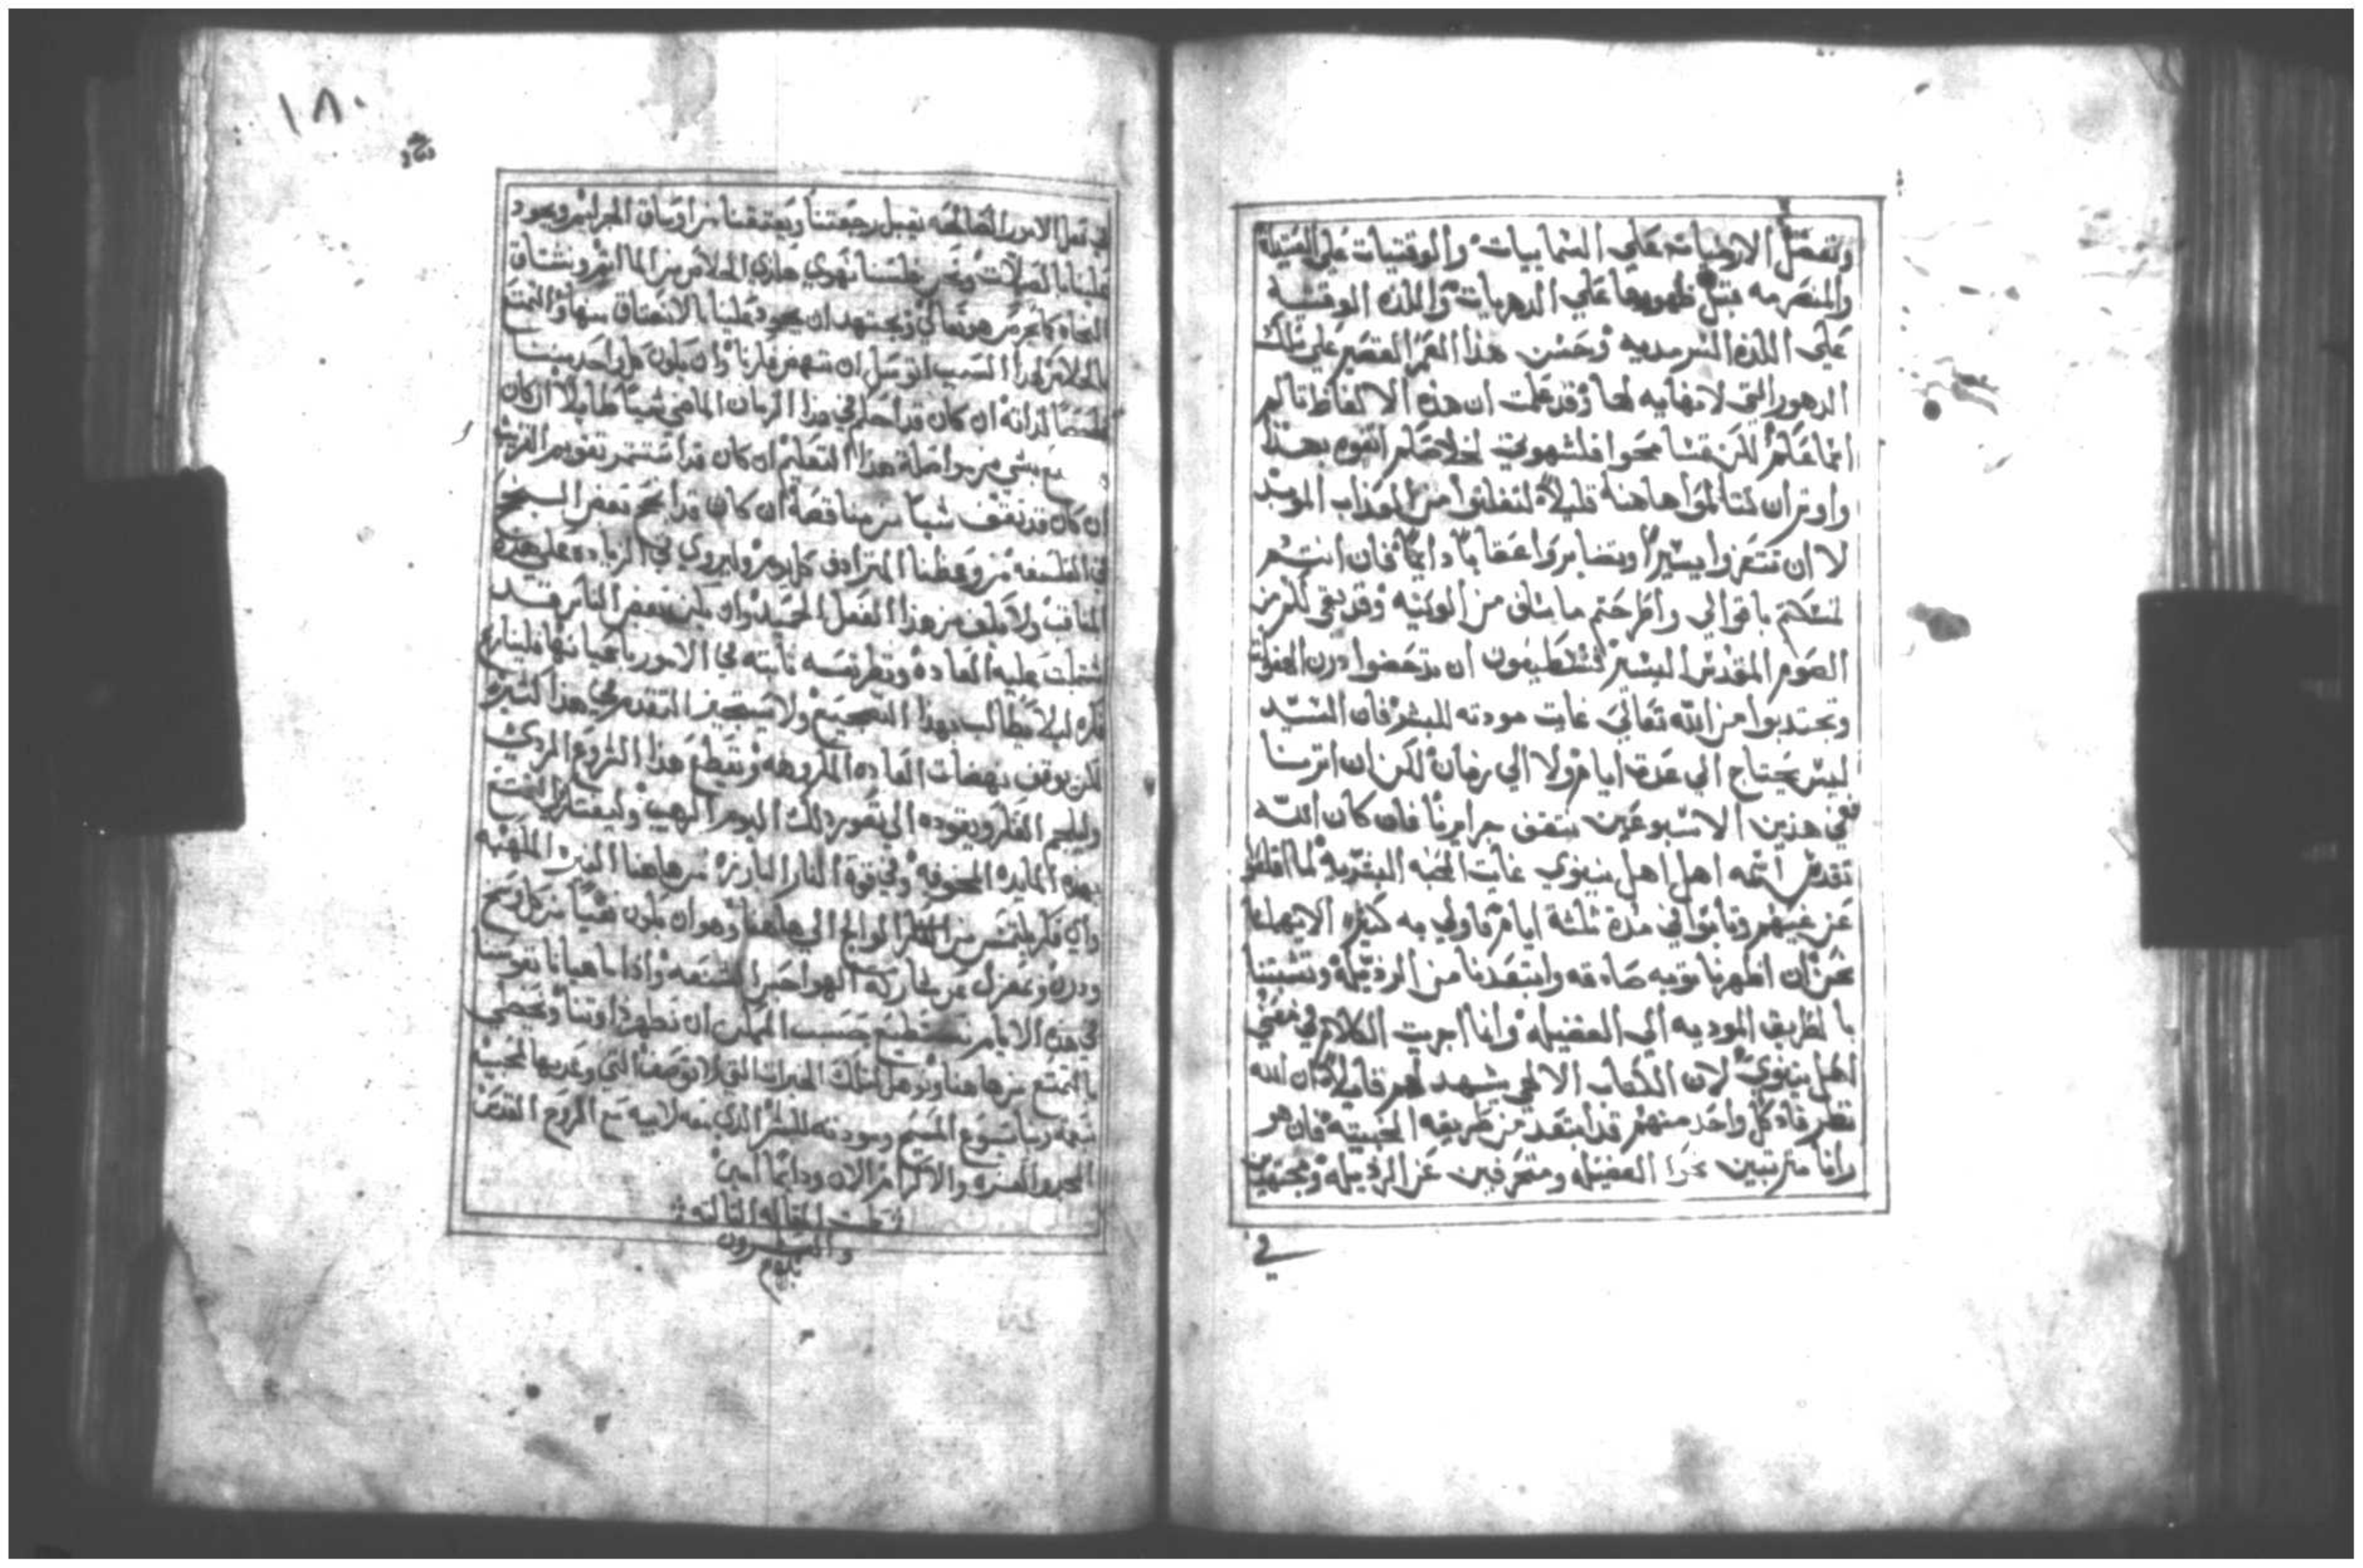 وتفضل الارضيات علي السماييات والوقتيات علي العتيدة
والمنصرمه قبل ظهورها علي الدهريات واللذه الوقتيه
علي اللذه السرمديه وحسن هذا العمر القصير علي تلك
الدهور التي لا نهايه لها وقد علمت ان هذه الالفاظ تالم
لشهوتي لخلاصكم اتفوه بهذا
واوثر ان تتالموا هاهنا قليلاً لتفلتوا من العذاب الموبد
لا ان تتعزوا يسيراً وتصابروا عقاباً دايماً فان انتم
باقوالي واطرحتم ما سلف من الونيه وقد بقي لكم من
الصوم المقدس اليسير تستطيعون ان تدحضوا درن الهفوات
وتجتدبوا من الله تعالي غايت مودته للبشر فان السيد
ليس يحتاج الي عدة ايام ولا الي زمان لكن ان اثرنا
ففي هذين الاسبوعين نتقن جرايرنا فان كان الله
تقدس اسمه اهل اهل نينوي غايت المحبه البشريه لما اقلعوا
عن غيهم وتابوا في مدة ثلثة ايام فاولي به كثيره الا يهملنا
نحن ان اظهرنا توبه صادقه وابتعدنا من الرذيله وتشبتنا
بالطريق الموديه الي الفضيله وانا اجريت الكلام في معني
اهل نينوي لان الكتاب الالهي يشهد لهم قايلاً ان الله
نظر فاذ كل واحد منهم قد ابتعد من طريقه الخبيثه فان هو
رانا مترتبين نحوا الفضيله ومنحرفين عن الرذيله ومجتهدين
في
١٨٠
في فعل الامور الصالحه يقبل رجعتنا ويعتقنا من اوساق الجرايم ويجود
علينا بالصلات ونحن فلسنا نهوي هاذي الخلاص من الماثم ونشتاق
النجاه كما يحرص هو تعالي ويجتهد ان يجود علينا بالانعتاق منها والتمتع
بالخلاص لهذا السبب اتوسل ان تنهض افكارنا وان يكون كل واحد مننا
ان كان قد احكم في هذا الزمان الماضي شياً طايلاً ان كان
بشي من مواصلة هذا التعليم ان كان قد استتمر تقويم القريب
ان كان قد تقف شياً من مناقصه ان كان قد انجح بعض النجح
في الفلسفه من وعظنا المترادف كل يوم وليروي في الزياده علي هذه
المناقب ولا يكف من هذا الفعل الحميد وان يكن بعض الناس قد
اشتملت عليه العاده ونظر نفسه ثابته في الامور باعيانها فليسارع
فكره ليلا يطالب بهذا التضجيع ولا يستجيز التقدم في هذا كثيره
لكن يوقف نهضات العاده المكروهه ويقطع هذا الشروع الردي
وليلجم الفكر ويقوده الي تصور ذلك اليوم الرهيب
بهذه المايده المخوفه وفي قوة النار البارزه من هاهنا النيره الملهبه
واي فكر يلتمس من الفكر الوالج الي هاهنا وهو ان يكون نقياً من كل وسخ
ودرن ويعزل عن فكره الهواجس الشنعه واذا ما هيانا نفوسنا
في هذه الايام نستطيع حسب المكن ان نطهر ذاوتنا ونحضي
بالتمتع من هاهنا ونوهل لتلك الخيرات التي لا توصف التي وعد بها لمحبيه
بنعمة ربنا يسوع المسيح ومودته للبشر الذي معه لابيه مع الروح القدس
المجد والعزه والاكرام الان ودايماً امين
كملت المقاله الثالثه
والعشرون